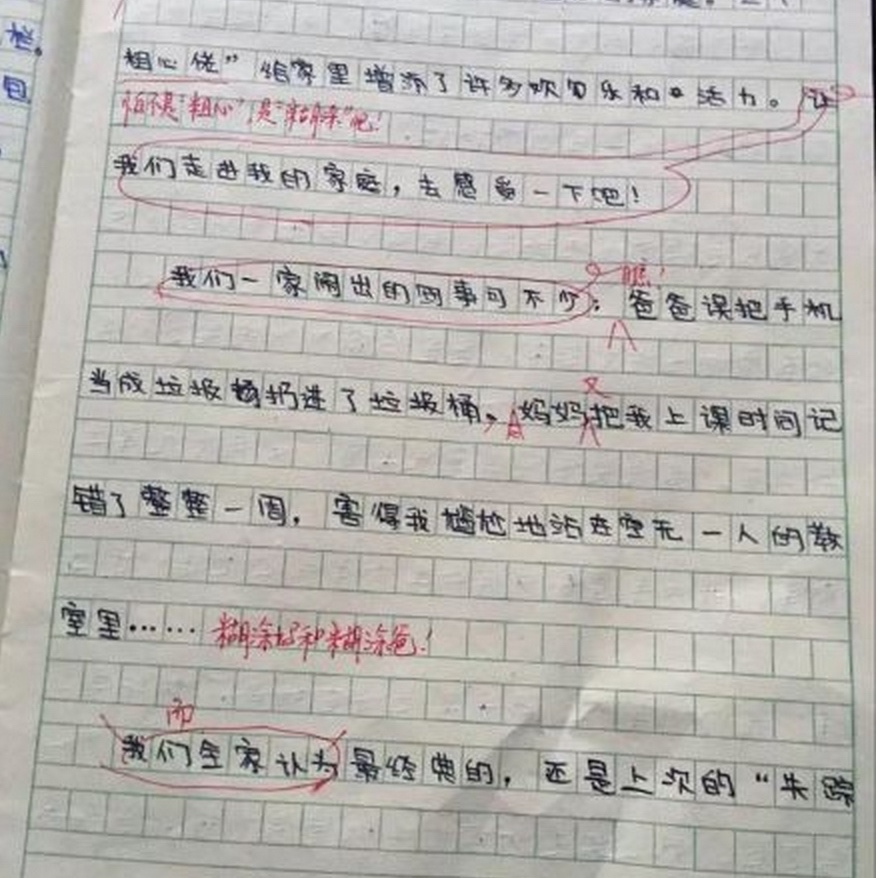 粗心佬”给家里增添了许多欢乐和活力。让
怕不是“粗心”是“糊涂”吧！
我们走进我的家庭，去感受一下吧！
瞧！
我们一家闹出的囧事可不少：爸爸误把手机
又
当成垃圾扔进了垃圾桶，妈妈把我上课时间记
错了整整一周，害得我尴尬地站在空无一人的教
室里……糊涂妈和糊涂爸！
而
我们全家认为最经典的，还是上次的“失踪